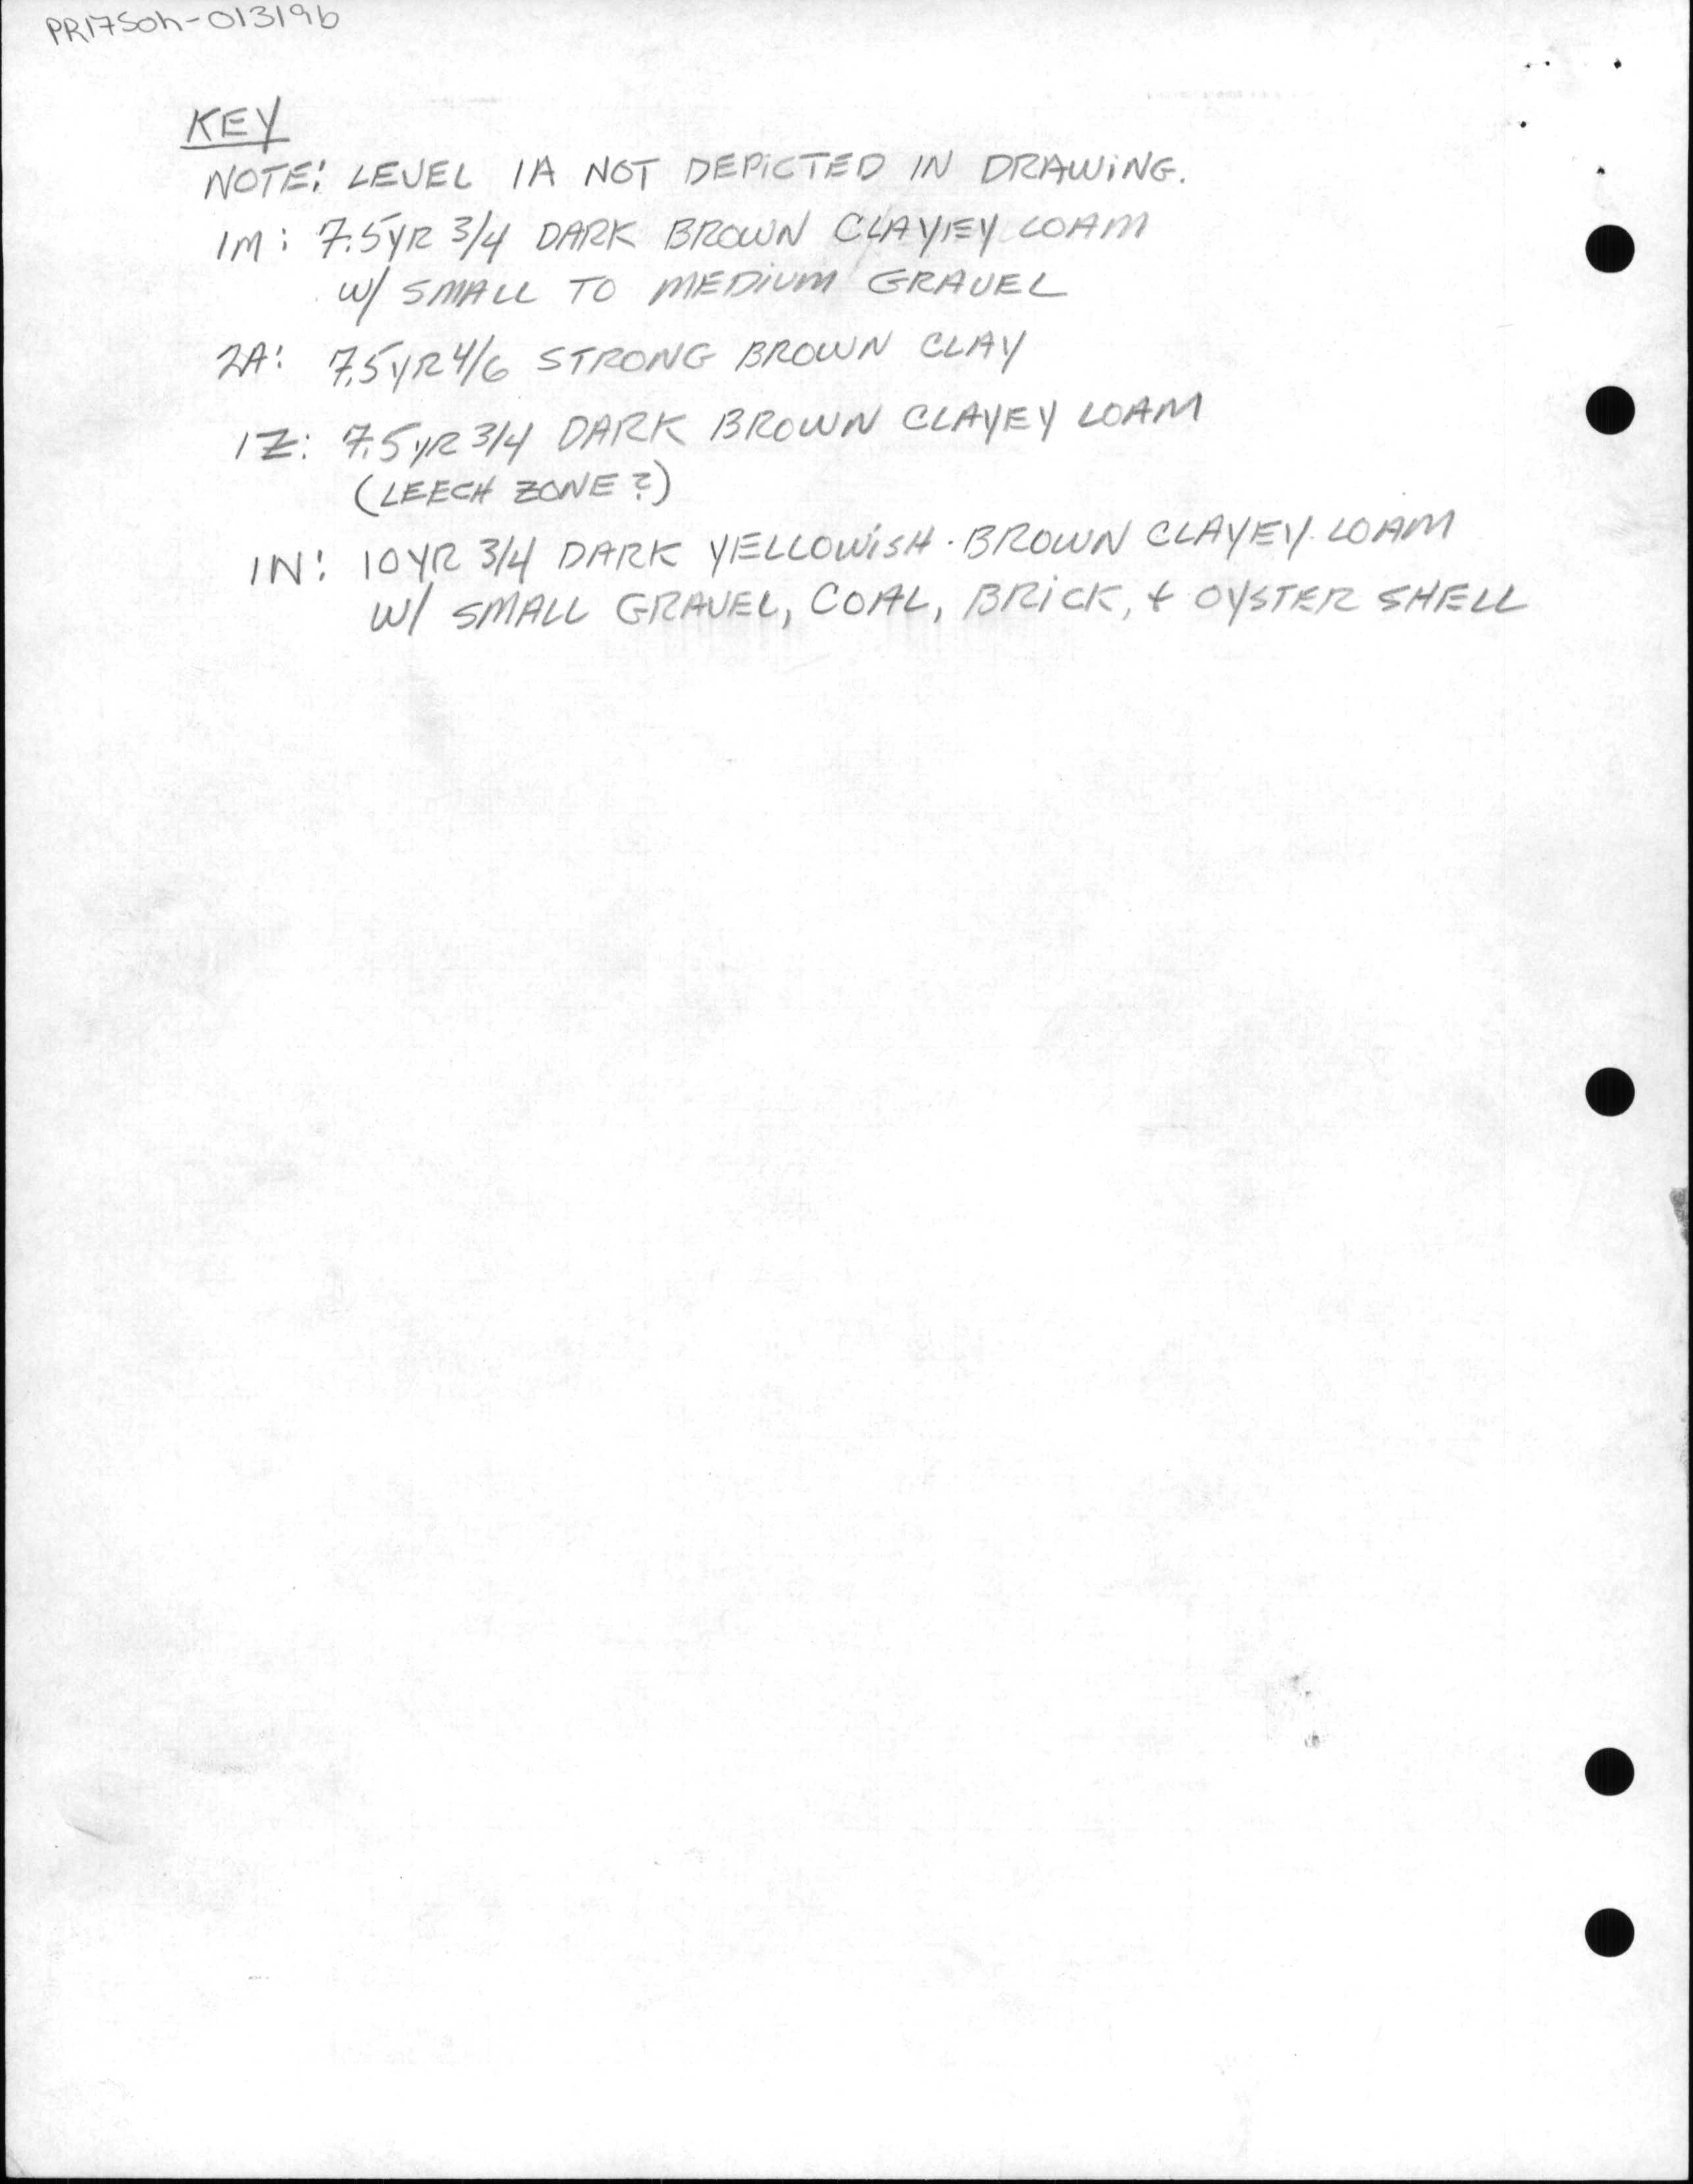 PR175Oh-013196
KEY
NOTE: LEVEL 1A NOT DEPICTED IN DRAWING.
1M: 7.5YR 3/4 DARK BROWN CLAYEY LOAM
W/ SMALL TO MEDIUM GRAVEL
2A: 7.5YR 4/6 STRONG BROWN CLAY
1Z: 7.5YR 3/4 DARK BROWN CLAYEY LOAM
(LEECH ZONE?)
1N: 10YR 3/4 DARK YELLOWISH-BROWN CLAYEY LOAM
W/ SMALL GRAVEL, COAL, BRICK, & OYSTER SHELL